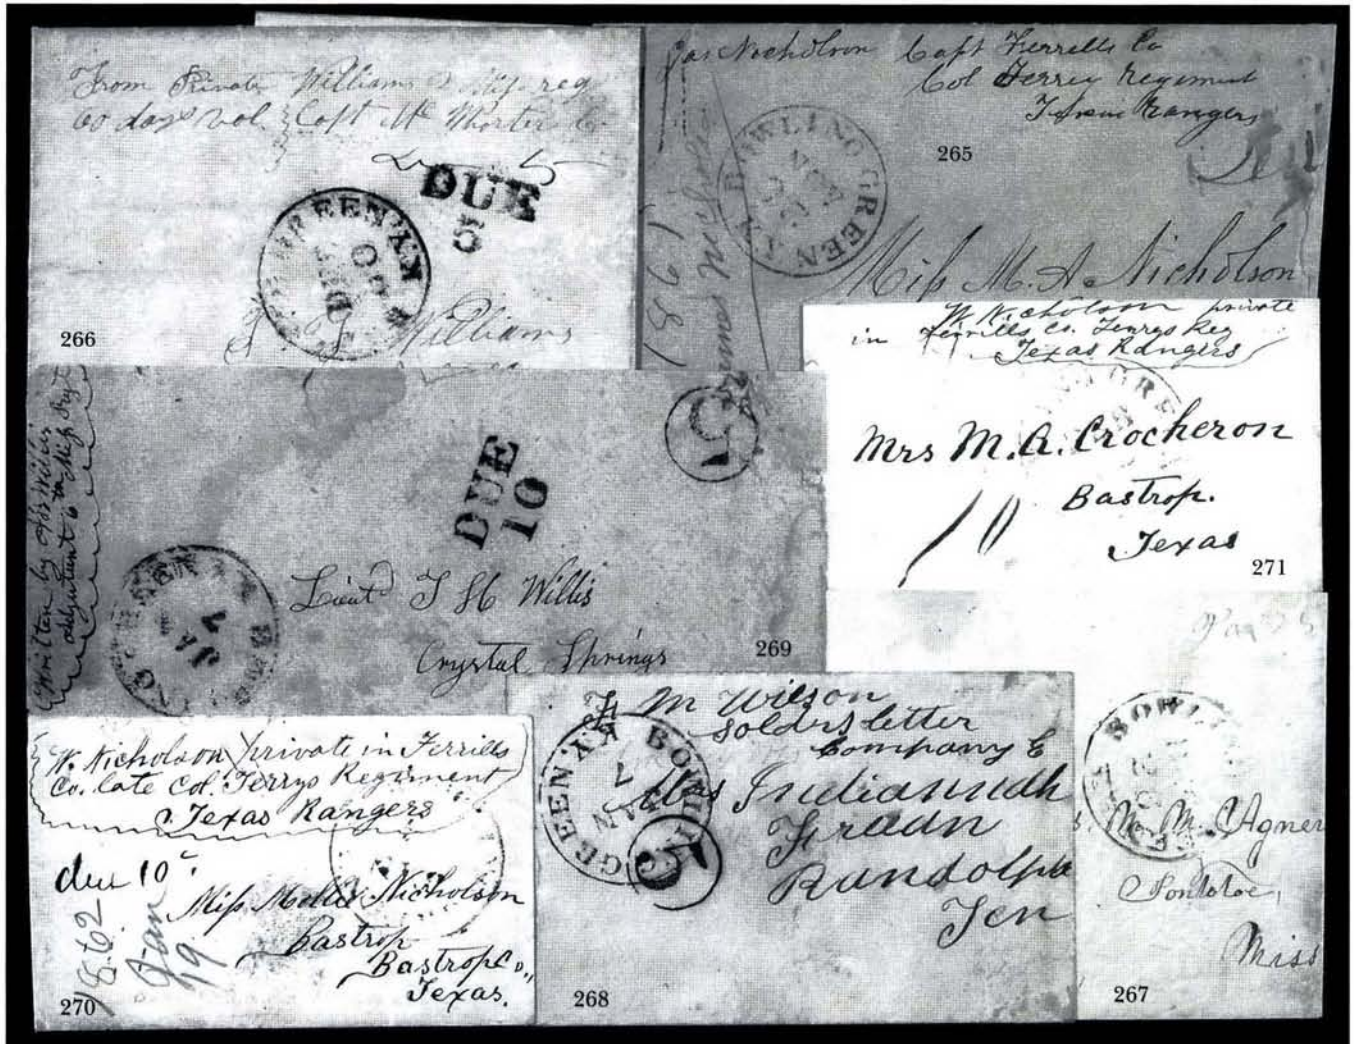 From Private Williams 2 Miss reg
60 days vol. Capt Mc Co
DUE
5
GREEN KY.
DEC
30
Williams
266
Jas Nicholson Capt Ferrells Co
Col Terrey Regiment
Texas Rangers
265
BOWLING GREEN KY
NOV
1861
James Nicholson
Miss M. A Nicholson
W Nicholson private
in Ferrills Co. Terrys Reg
Texas Rangers
Mrs M. A. Crocheron
Bastrop.
10
Texas
271
Written by Willis
adjutant 6 Miss Regt
DUE
10
5
JAN
Lieut T H Willis
Crystal Springs
269
W. Nicholson private in Ferrills
Co. late Col. Terrys Regiment
Texas Rangers
due 10c
1862
Jan
19
Miss Mollie Nicholson
Bastrop
Bastrop Co.,
Texas.
270
M Wilson
soldrs letter
Company E
BOWLING GREEN KY
JAN
7
5
Mrs
Randolph
Ten
268
BOWLING GREEN
M. M. Agner
Miss
267